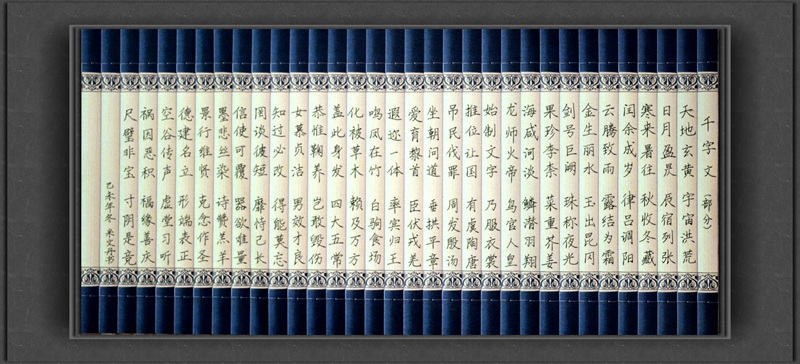 千字文（部分）
天地玄黄 宇宙洪荒
日月盈昃 辰宿列张
寒来暑往 秋收冬藏
闰余成岁 律吕调阳
云腾致雨 露结为霜
金生丽水 玉出昆冈
剑号巨阙 珠称夜光
果珍李柰 菜重芥姜
海咸河淡 鳞潜羽翔
龙师火帝 鸟官人皇
始制文字 乃服衣裳
推位让国 有虞陶唐
吊民伐罪 周发殷汤
坐朝问道 垂拱平章
爱育黎首 臣伏戎羌
遐迩一体 率宾归王
鸣凤在竹 白驹食场
化被草木 赖及万方
盖此身发 四大五常
恭惟鞠养 岂敢毁伤
女慕贞洁 男效才良
知过必改 得能莫忘
罔谈彼短 靡恃己长
信使可覆 器欲难量
墨悲丝染 诗赞羔羊
景行维贤 克念作圣
德建名立 形端表正
空谷传声 虚堂习听
祸因恶积 福缘善庆
尺璧非宝 寸阴是竞
乙未年冬